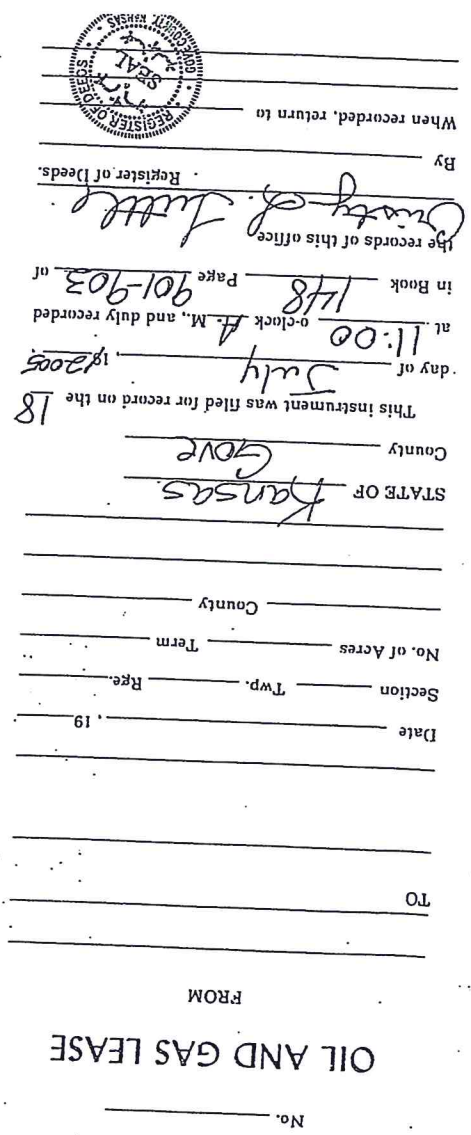 No.
OIL AND GAS LEASE
FROM
TO
Date , 19
Section Twp. Rge.
No. of Acres Term
County
STATE OF Kansas
County Gove
This instrument was filed for record on the 18
day of July , 19 2005,
at 11:00 o-clock A. M., and duly recorded
in Book 148 Page 901-903 of
the records of this office
Cristy L. Tuttle
Register of Deeds.
By
When recorded, return to
REGISTER OF DEEDS
SEAL
GOVE COUNTY, KANSAS